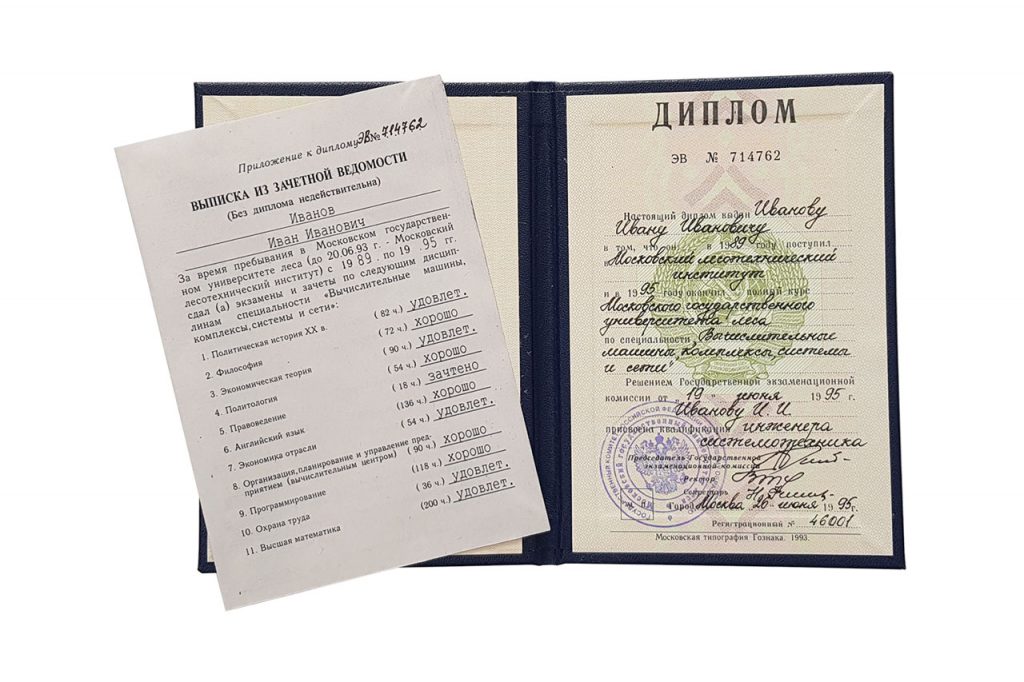 Приложение к диплому ЭВ № 714762
ВЫПИСКА ИЗ ЗАЧЕТНОЙ ВЕДОМОСТИ
(Без диплома недействительна)
Иванов
Иван Иванович
За время пребывания в Московском государствен-
ном университете леса (до 20.06.93 г. - Московский
лесотехнический институт) с 1989. по 1995 гг.
сдал (а) экзамены и зачеты по следующим дисцип-
линам специальности «Вычислительные машины,
комплексы, системы и сети»:
1. Политическая история XX в. (82 ч.) удовлет.
2. Философия (72 ч.) хорошо
3. Экономическая теория (90 ч.) удовлет.
4. Политология (54 ч.) хорошо
5. Правоведение (18 ч.) зачтено
6. Английский язык (136 ч.) хорошо
7. Экономика отрасли (54 ч.) удовлет.
8. Организация, планирование и управление пред-
приятием (вычислительным центром) (90 ч.) хорошо
9. Программирование (118 ч.) хорошо
10. Охрана труда (36 ч.) удовлет.
11. Высшая математика (200 ч.) удовлет.
ДИПЛОМ
ЭВ № 714762
Настоящий диплом выдан Иванову
Ивану Ивановичу
в том, что он в 1989 году поступил
в Московский лесотехнический
институт
и в 1995 году окончил полный курс
Московского государственного
университета леса
по специальности „Вычислительные
машины, комплексы, системы
и сети"
Решением Государственной экзаменационной
комиссии от 19 июня 1995 г.
Иванову И. И
присвоена квалификация инженера
системотехника
Председатель Государственной
экзаменационной комиссии
Ректор
Секретарь
М.П. Город Москва 20 июня 1995 г.
Регистрационный № 46001
Московская типография Гознака. 1993.